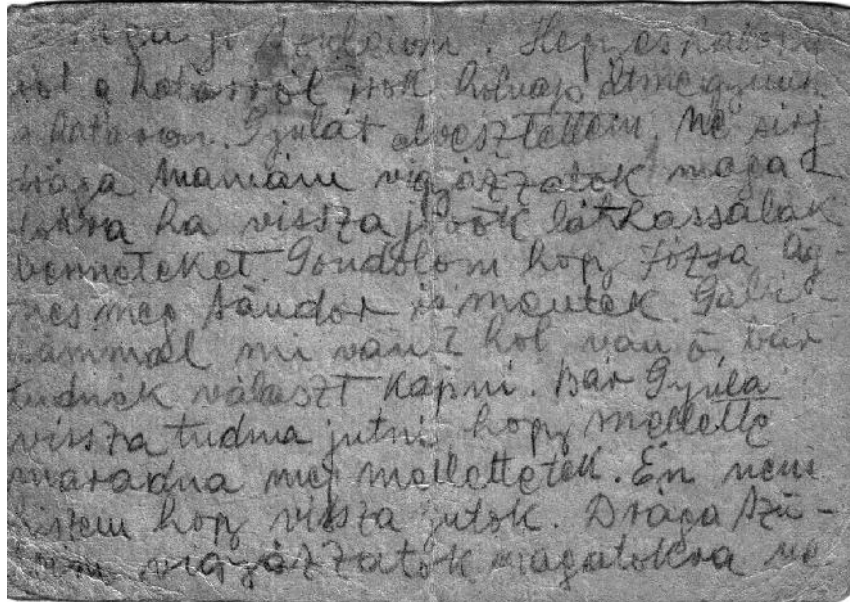 jó Szüleim! Hegyeshalom
ból a határról írok holnap átmegyünk
a határon. Gyulát elvesztettem, Ne sirj
drága Mamám vigyázzatok maga
tokra ha vissza jövök láthassalak
benneteket. Gondolom hogy Józsa Ág-
nes meg Sándor is mentek. Gabi-
kámmal mi van? hol van ő, bár
tudnék választ kapni. Bár Gyula
vissza tudna jutni hogy mellette
maradna meg mellettetek. Én nem
hiszem hogy vissza jutok. Drága Szü-
leim vigyázzatok magatokra ne